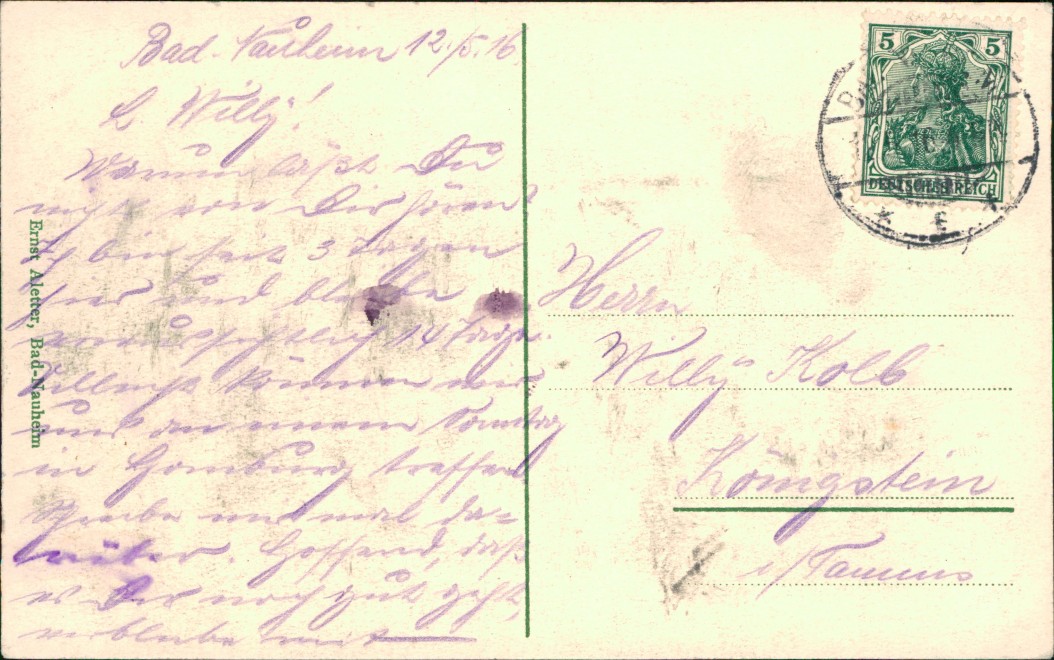 Bad-Nauheim 12./5.16.
L. Willy!
Warum läßt Du
nichts von Dir hören?
Ich bin seit 3 Tagen
hier und bleibe
voraussichtlich 14 Tage.
Vielleicht können wir
uns an einem Sonntag
in Homburg treffen.
Schreibe mir mal da=
rüber. Hoffend, daß
es Dir noch gut geht,
verbleibe mit
Ernst Aletter, Bad-Nauheim
5 5
DEUTSCHES REICH
* F *
Herrn
Willy Kolb
Königstein
i/Taunus